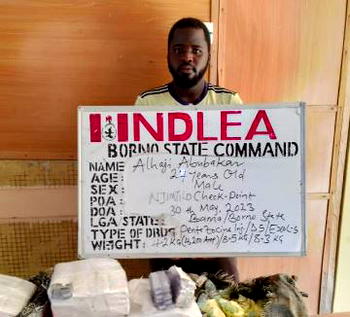 NDLEA
BORNO STATE COMMAND
NAME Alhaji Aboubakar
AGE: 27 Years Old
SEX: Male
POA: NJIMTILO Check-Point
DOA: 30th May, 2023
LGA STATE: Bama/Borno State
TYPE OF DRUG Pentazocine Inj/D5/Exol-5
WEIGHT: